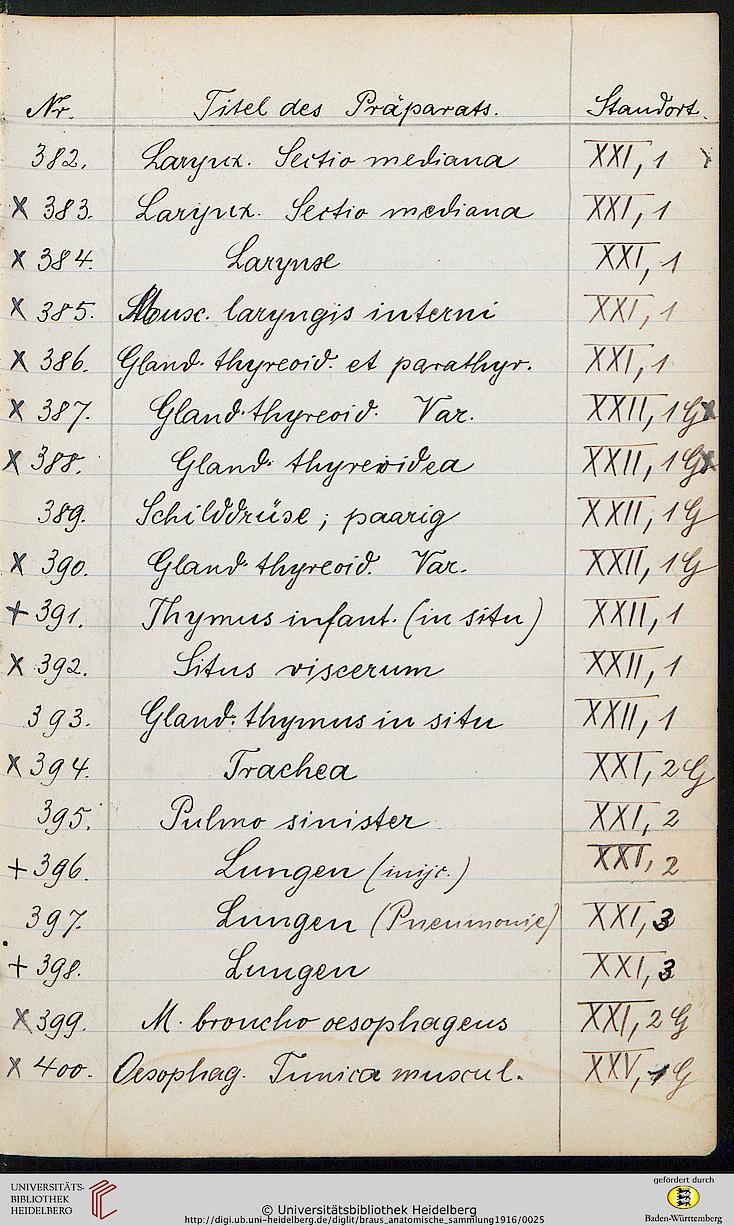 Nr. Titel des Präparats. Standort.
382. Larynx. Sectio mediana XXI, 1
x 383. Larynx. Sectio mediana XXI, 1
x 384. Larynx XXI, 1
x 385. Musc. laryngis interni XXI, 1
x 386. Gland. thyreoid. et parathyr. XXI, 1
x 387. Gland. thyreoid. Var. XXII, 1 G x
x 388. Gland. thyreoidea XXII, 1 G x
389. Schilddrüse; paarig XXII, 1 G
x 390. Gland. thyreoid. Var. XXII, 1 G
+ 391. Thymus infant. (in situ) XXII, 1
x 392. Situs viscerum XXII, 1
393. Gland. thymus in situ XXII, 1
x 394. Trachea XXI, 2 G
395. Pulmo sinister XXI, 2
+ 396. Lungen (injic.) XXI, 2
397. Lungen (Pneumonie) XXI, 3
+ 398. Lungen XXI, 3
x 399. M. broncho oesophageus XXI, 2 G
x 400. Oesophag. Tunica muscul. XXV, 1 G
UNIVERSITÄTS-
BIBLIOTHEK
HEIDELBERG
© Universitätsbibliothek Heidelberg
http://digi.ub.uni-heidelberg.de/diglit/braus_anatomische_sammlung1916/0025
gefördert durch
Baden-Württemberg